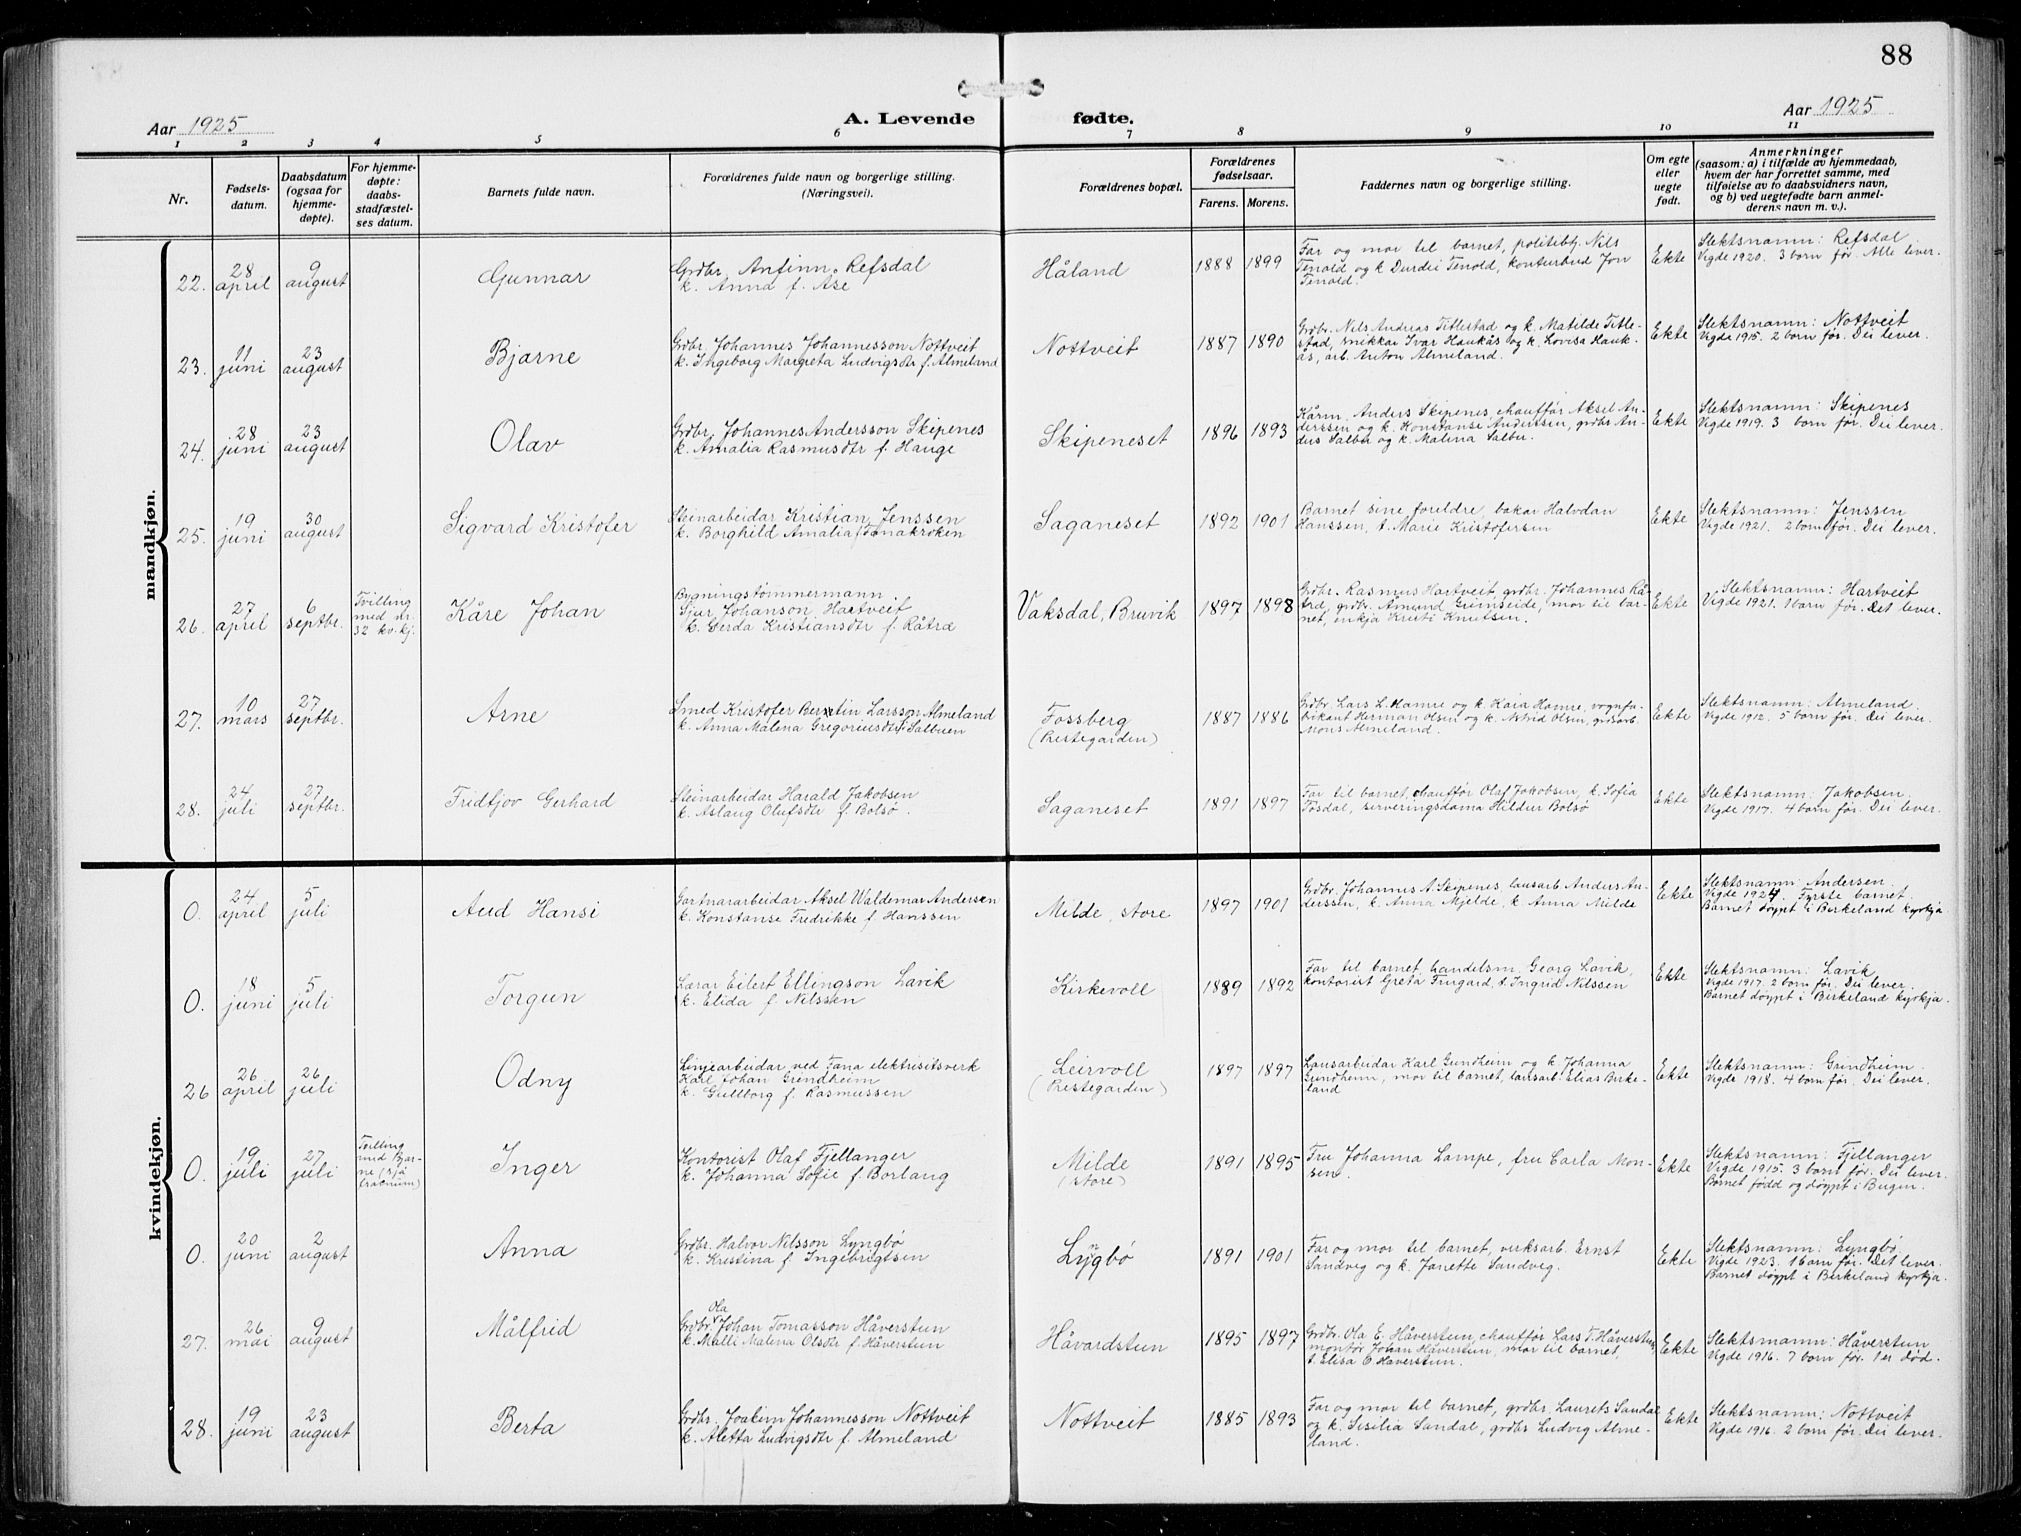 88
Aar 1925
A. Levende fødte.
Aar 1925
1 2 3 4 5 6 7 8 9 10 11
Nr.
Fødsels-
datum.
Daabsdatum
(ogsaa for
hjemme-
døpte).
For hjemme-
døpte:
daabs-
stadfæstel-
ses datum.
Barnets fulde navn.
Forældrenes fulde navn og borgerlige stilling.
(Næringsvei).
Forældrenes bopæl.
Forældrenes
fødselsaar.
Farens. Morens.
Faddernes navn og borgerlige stilling.
Om egte
eller
uegte
født.
Anmerkninger
(saasom: a) i tilfælde av hjemmedaab,
hvem der har forrettet samme, med
tilføielse av to daabsvidners navn,
og b) ved uegtefødte barn anmel-
derens navn m. v.).
mandkjøn.
22.
28
april
9
august
Gunnar
Grdbr. Anfinn Refsdal
k. Anna f. Ase
Håland
1888 1899
Far og mor til barnet, politibtj. Nils
Tenold og k Durdei Tenold, konturbud Jon
Tenold.
Ekte
Slektsnamn: Refsdal
Vigde 1920. 3 born før. Alle lever.
23.
11
juni
23
august
Bjarne
Grdbr. Johannes Johannesson Nottveit
k. Ingeborg Margreta Ludvigsdtr f. Almeland
Nottveit
1887 1890
Grdbr. Nils Andreas Titlestad og k. Matilde Title-
stad, snikkar Ivar Haukås og k. Lovisa Hauk-
ås, arb. Anton Almeland.
Ekte
Slektsnamn: Nottveit
Vigde 1915. 2 born før. Dei lever.
24.
28
juni
23
august
Olav
Grdbr. Johannes Andersson Skipenes
k. Amalia Rasmusdtr f. Hauge
Skipeneset
1896 1893
Kårm. Anders Skipenes, chauffør Aksel An-
derssen og k. Konstanse Anderssen, grdbr An-
ders Salbu og k. Malina Salbu.
Ekte
Slektsnamn: Skipenes
Vigde 1919. 3 born før. Dei lever.
25.
19
juni
30
august
Sigvard Kristofer
Steinarbeidar Kristian Jenssen
k. Borghild Amalia f. Fanakroken
Saganeset
1892 1901
Barnet sine foreldre, bakar Halvdan
Hanssen, t. Marie Kristofersen
Ekte
Slektsnamn: Jenssen
Vigde 1921. 2 born før. Dei lever.
26.
27
april
6
septbr.
Tvilling
med nr.
32 kv.kj.
Kåre Johan
Bygningstømmermann
Sjur Johanson Hartveit
k. Gerda Kristiansdtr f. Råtræ
Vaksdal, Bruvik
1897 1898
Grdbr. Rasmus Hartveit, grdbr. Johannes Rå-
træ, grdbr. Amund Grimseide, mor til bar-
net, enkja Kristi Knutsen.
Ekte
Slektsnamn: Hartveit
Vigde 1921. 1 born før. Det lever.
27.
10
mars
27
septbr.
Arne
Smed Kristofer Berntin Larsson Almeland
k. Anna Malena Gregoriusdtr f. Salbuen
Fossberg
(Prestegarden)
1887 1886
Grdbr. Lars L. Hamre og k. Kaia Hamre, vognfa-
brikant Herman Olsen og k. Astrid Olsen, grdsarb.
Mons Almeland.
Ekte
Slektsnamn: Almeland.
Vigde 1912. 5 born før. Dei lever.
28.
24
juli
27
septbr.
Fridtjov Gerhard
Steinarbeidar Harald Jakobsen
k. Aslaug Olufsdtr f. Bolsø.
Saganeset
1891 1897
Far til barnet, chauffør Olaf Jakobsen, k. Sofia
Fosdal, serveringsdama Hildur Bolsø
Ekte
Slektsnamn: Jakobsen.
Vigde 1917. 4 born før. Dei lever.
kvindekjøn.
0.
24
april
5
juli
Aud Hansi
Gartnararbeidar Aksel Waldemar Andersen
k. Konstanse Fredrikke f. Hanssen
Milde, store
1897 1901
Grdbr. Johannes A. Skipenes, lausarb. Anders An-
derssen, k. Anna Mjelde, k. Anna Milde
Ekte
Slektsnamn: Andersen.
Vigde 1924. Fyrste barnet.
Barnet døypt i Birkeland kyrkja
0.
18
juni
5
juli
Torgun
Lærar Eilert Ellingson Lavik
k. Elida f. Nilssen
Kirkevoll
1889 1892
Far til barnet, handelsm. Georg Lavik,
kontorist Greta Frugard, t. Ingrid Nilssen
Ekte
Slektsnamn: Lavik
Vigde 1917. 2 born før. Dei lever.
Barnet døypt i Birkeland kyrkja.
26
26
april
26
juli
Odny
Linjearbeidar ved Fana elektrisitsverk
Karl Johan Grindheim
k. Gullborg f. Rasmussen
Leirvoll
(Prestegarden)
1897 1897
Lausarbeidar Karl Grindheim og k. Johanna
Grindheim, mor til barnet, lausarb. Elias Birke-
land
Ekte
Slektsnamn: Grindheim
Vigde 1918. 4 born før. Dei lever.
0.
19
juli
27
juli
Tvilling
med Bjar-
ne
Inger
Kontorist Olaf Fjellanger
k. Johanna Sofie f. Borlaug
Milde
(store)
1891 1895
Fru Johanna Lampe, fru Carla Mon-
sen.
Ekte
Slektsnamn: Fjellanger
Vigde 1915. 3 born før. Dei lever.
Barnet fødd og døypt i Bergen.
0.
20
juni
2
august
Anna
Grdbr. Halvor Nilsson Lyngbø
k. Kristina f. Ingebrigtsen
Lyngbø
1891 1901
Far og mor til barnet, verksarb. Ernst
Sandveg og k. Janette Sandveg.
Ekte
Slektsnamn: Lyngbø.
Vigde 1923. 1 born før. Det lever.
Barnet døypt i Birkeland kyrkja.
27.
26
mai
9
august
Målfrid
Ola
Grdbr. Johan Tomasson Håverstun
k. Malli Malena Olsdtr f. Håverstun
Håvardstun
1895 1897
Grdbr. Ola E. Håverstun, chauffør Lars T. Håverstun,
montør Johan Håverstun, mor til barnet,
t. Elisa O. Håverstun.
Ekte
Slektsnamn: Håverstun
Vigde 1916. 7 born før. 1 er død.
28.
19
juni
23
august
Berta
Grdbr. Joakim Johannesson Nottveit
k. Aletta Ludvigsdtr f. Almeland
Nottveit
1885 1893
Far og mor til barnet, grdbr. Laurets Sandal
og k. Sesilia Sandal, grdbr Ludvig Alme-
land.
Ekte
Slektsnamn: Nottveit
Vigde 1916. 2 born før. Dei lever.